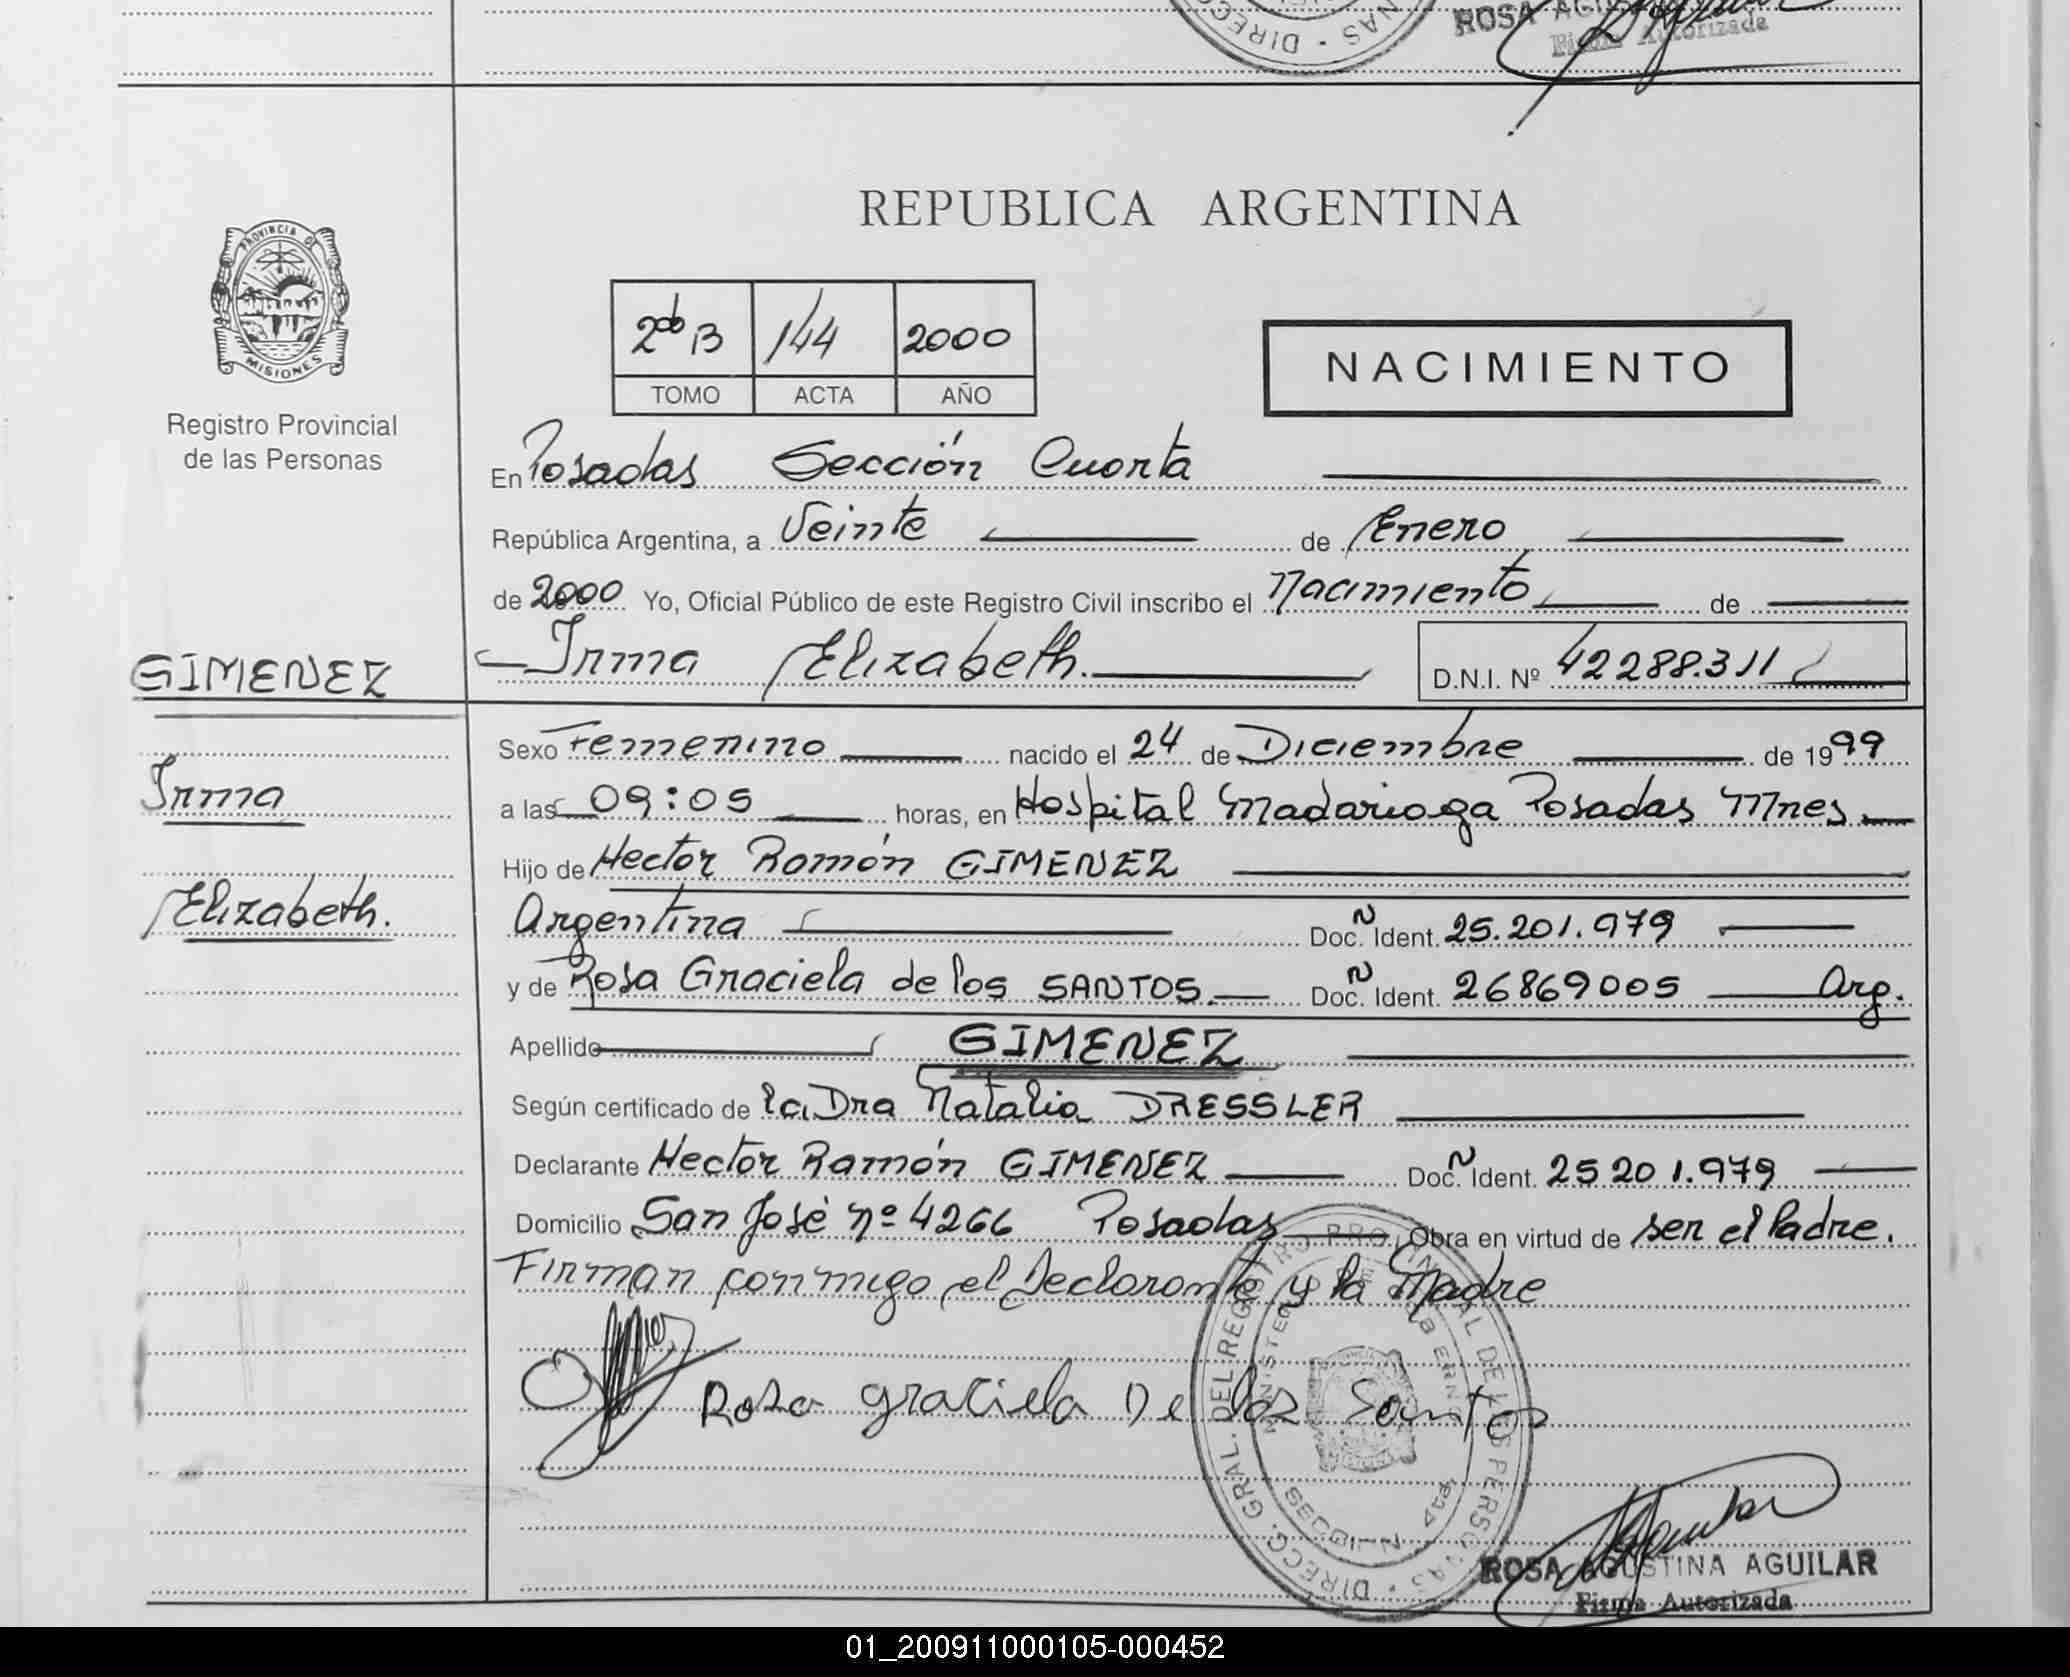 ROSA
Firma Autorizada
REPUBLICA ARGENTINA
PROVINCIA DE
MISIONES
Registro Provincial
de las Personas
2do B 144 2000
TOMO ACTA AÑO
NACIMIENTO
En Posadas Sección Cuarta
República Argentina, a Veinte de Enero
de 2000 Yo, Oficial Público de este Registro Civil inscribo el Nacimiento de
GIMENEZ
Irma Elizabeth. D.N.I. Nº 42288.311
Sexo Femenino nacido el 24 de Diciembre de 1999
Irma
a las 09:05 horas, en Hospital Madariaga Posadas Mnes
Hijo de Hector Ramón GIMENEZ
Elizabeth.
Argentina Doc. N Ident. 25.201.979
y de Rosa Graciela de los SANTOS Doc. N Ident. 26869005 Arg.
Apellido GIMENEZ
Según certificado de la Dra Natalia DRESSLER
Declarante Hector Ramón GIMENEZ Doc. N Ident. 25201.979
Domicilio San José nº 4266 Posadas Obra en virtud de ser el Padre.
Firman conmigo el Declarante y la Madre
Rosa Graciela De los Santos
DIRECC. GRAL. DEL REGISTRO PROVINCIAL DE LAS PERSONAS
ROSA AGUSTINA AGUILAR
Firma Autorizada
01_200911000105-000452